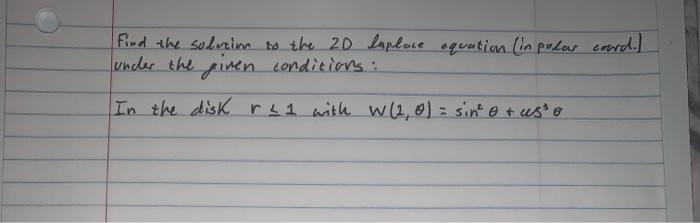 Find the solution to the 2D laplace equation (in polar coord.)
under the given conditions:
In the disk r ≤ 1 with W(1, θ) = sin² θ + cos³ θ